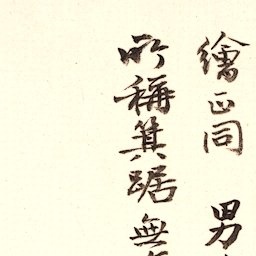 繪正同 男
所稱箕踞無